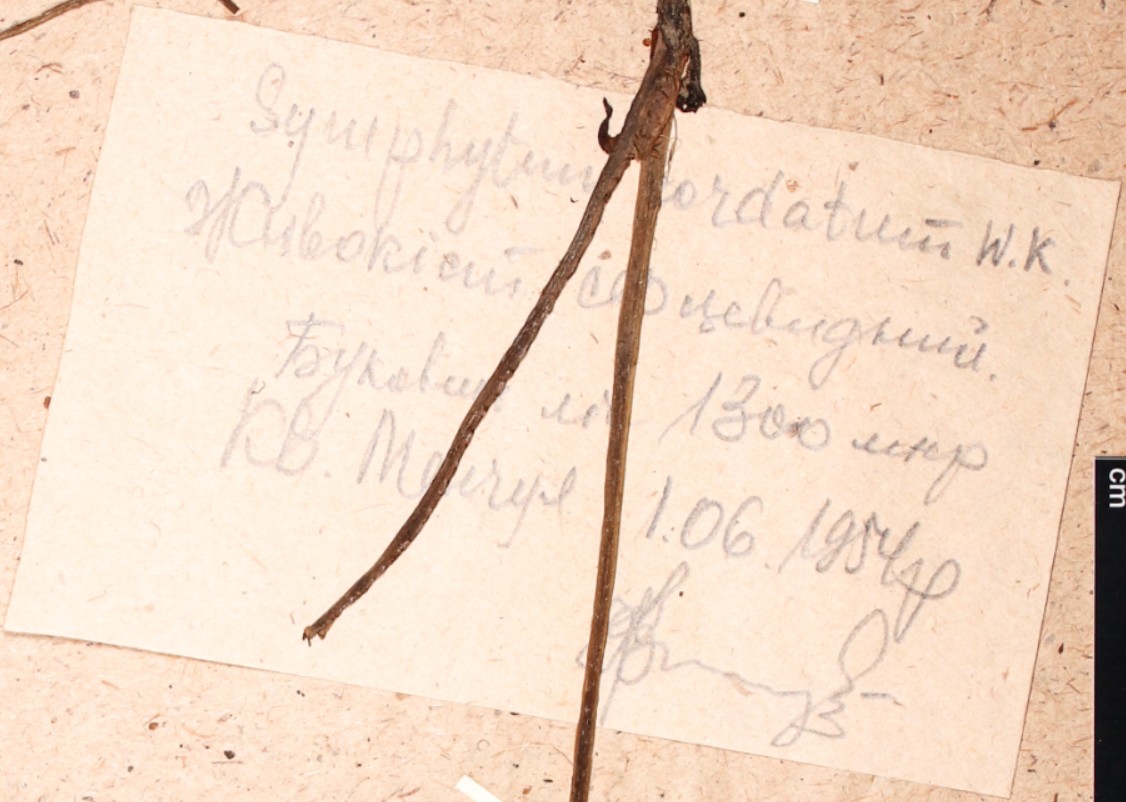 Symphytum cordatum W.K.
Живокіст серцевидний.
Буковий ліс 1300 мнр
Кв. Менчул 1.06.1954р
cm